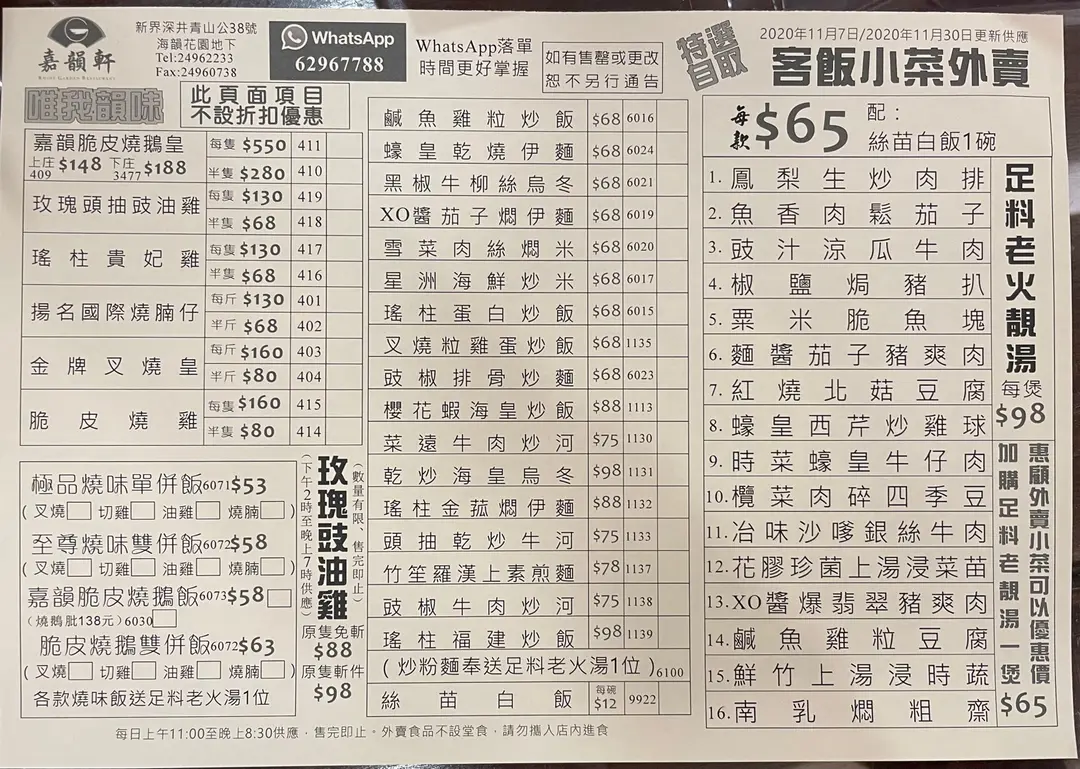 嘉韻軒
新界深井青山公38號
海韻花園地下
Tel:24962233
Fax:24960738
WhatsApp
62967788
WhatsApp落單
時間更好掌握
如有售罄或更改
恕不另行通告
唯我韻味
此頁面項目
不設折扣優惠
嘉韻脆皮燒鵝皇 每隻 $550 411
上庄 $148 409 下庄 $188 3477 半隻 $280 410
玫瑰頭抽豉油雞 每隻 $130 419
半隻 $68 418
瑤柱貴妃雞 每隻 $130 417
半隻 $68 416
揚名國際燒腩仔 每斤 $130 401
半斤 $68 402
金牌叉燒皇 每斤 $160 403
半斤 $80 404
脆皮燒雞 每隻 $160 415
半隻 $80 414
極品燒味單併飯6071$53
(叉燒 切雞 油雞 燒腩 )
至尊燒味雙併飯6072$58
(叉燒 切雞 油雞 燒腩 )
嘉韻脆皮燒鵝飯6073$58
(燒鵝肶138元)6030
脆皮燒鵝雙併飯6072$63
(叉燒 切雞 油雞 燒腩 )
各款燒味飯送足料老火湯1位
玫瑰豉油雞
(數量有限、售完即止)
(下午2時至晚上7時供應)
原隻免斬
$88
原隻斬件
$98
鹹魚雞粒炒飯 $68 6016
蠔皇乾燒伊麵 $68 6024
黑椒牛柳絲烏冬 $68 6021
XO醬茄子燜伊麵 $68 6019
雪菜肉絲燜米 $68 6020
星洲海鮮炒米 $68 6017
瑤柱蛋白炒飯 $68 6015
叉燒粒雞蛋炒飯 $68 1135
豉椒排骨炒麵 $68 6023
櫻花蝦海皇炒飯 $88 1113
菜遠牛肉炒河 $75 1130
乾炒海皇烏冬 $98 1131
瑤柱金菰燜伊麵 $88 1132
頭抽乾炒牛河 $75 1133
竹笙羅漢上素煎麵 $78 1137
豉椒牛肉炒河 $75 1138
瑤柱福建炒飯 $98 1139
(炒粉麵奉送足料老火湯1位)6100
絲苗白飯 每碗 $12 9922
特選
自取
2020年11月7日/2020年11月30日更新供應
客飯小菜外賣
每款 $65 配：
絲苗白飯1碗
1. 鳳梨生炒肉排
2. 魚香肉鬆茄子
3. 豉汁涼瓜牛肉
4. 椒鹽焗豬扒
5. 粟米脆魚塊
6. 麵醬茄子豬爽肉
7. 紅燒北菇豆腐
8. 蠔皇西芹炒雞球
9. 時菜蠔皇牛仔肉
10. 欖菜肉碎四季豆
11. 冶味沙嗲銀絲牛肉
12. 花膠珍菌上湯浸菜苗
13. XO醬爆翡翠豬爽肉
14. 鹹魚雞粒豆腐
15. 鮮竹上湯浸時蔬
16. 南乳燜粗齋
足料老火靚湯
每煲
$98
惠顧外賣小菜可以優惠價
加購足料老靚湯一煲
$65
每日上午11:00至晚上8:30供應，售完即止。外賣食品不設堂食，請勿攜入店內進食